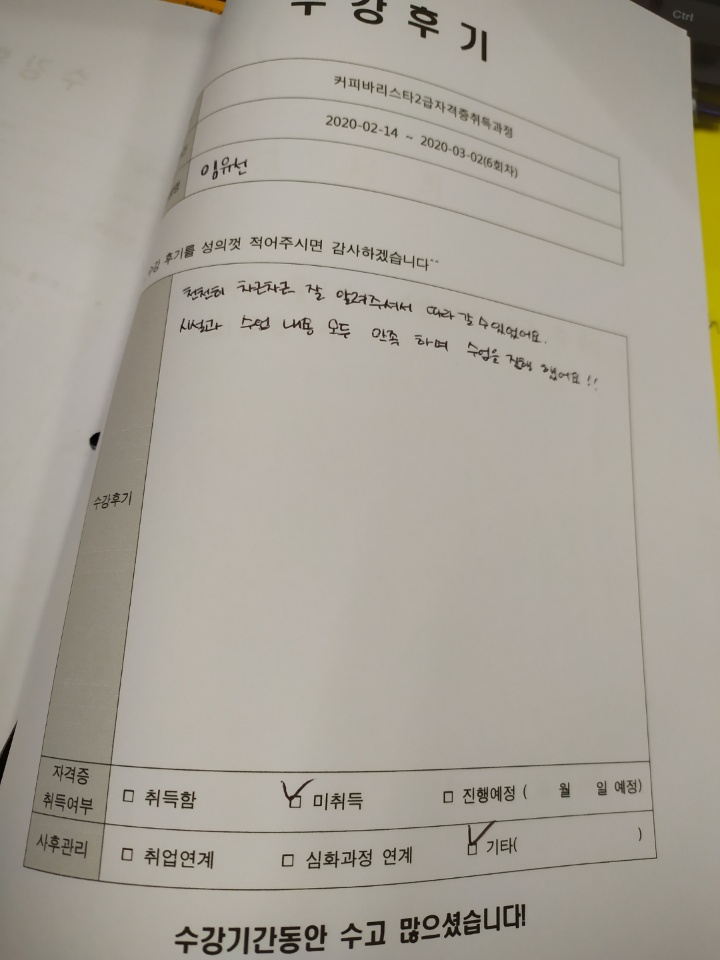 수강후기
커피바리스타2급자격증취득과정
2020-02-14 ~ 2020-03-02(6회차)
임유선
수강 후기를 성의껏 적어주시면 감사하겠습니다^^
천천히 차근차근 잘 알려주셔서 따라갈 수 있었어요.
시설과 수업 내용 모두 만족 하며 수업을 진행 했어요!!
수강후기
자격증 취득여부 □ 취득함 ☑ 미취득 □ 진행예정 ( 월 일 예정)
사후관리 □ 취업연계 □ 심화과정 연계 ☑ 기타( )
수강기간동안 수고 많으셨습니다!
Ctrl